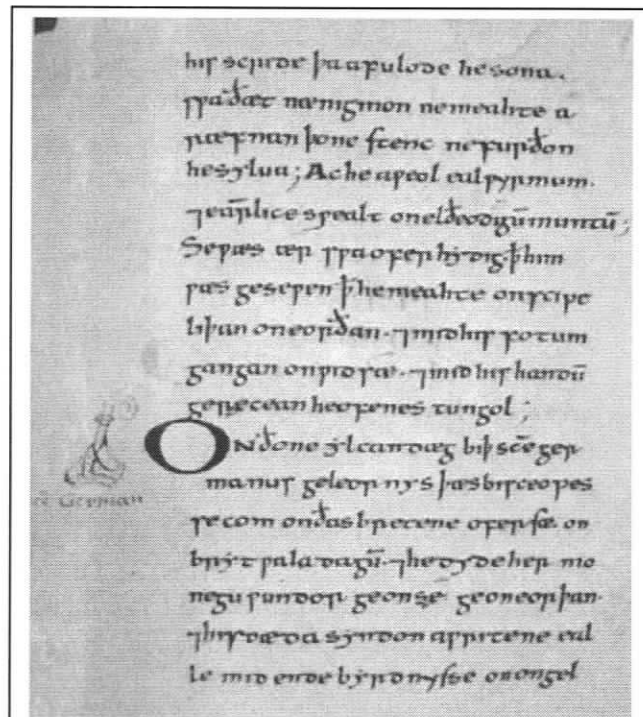 his scirde þa afulode he sona.
sƿa ðæt nænigmon ne meahte a
ræfnan þone stenc ne furðon
he sylua; Ac he aƿeol eal ƿyrmum.
⁊ earm̄lice sƿealt on elðeodigū muntū;
Se ƿæs ær sƿa oferhydig · þ̄ him
ƿæs geseƿen þ̄ he meahte on scipe
liþan on eorðan · ⁊ mid his fotum
gangan on ƿid sæ · ⁊ mid his handū
gereccan heofenes tungol;
ON ðone ylcan dæg biþ sc̄e ger
manus geleornys þæs bisceopes
se com on ðas bretene ofer sæ on
bryt ƿala dagū · ⁊ he dyde her mo
negu ƿundor ge on sę ge on eorþan ·
⁊ his dæda syndon aƿritene eal
le mid endebyrdnysse on ongel
sc̄ German